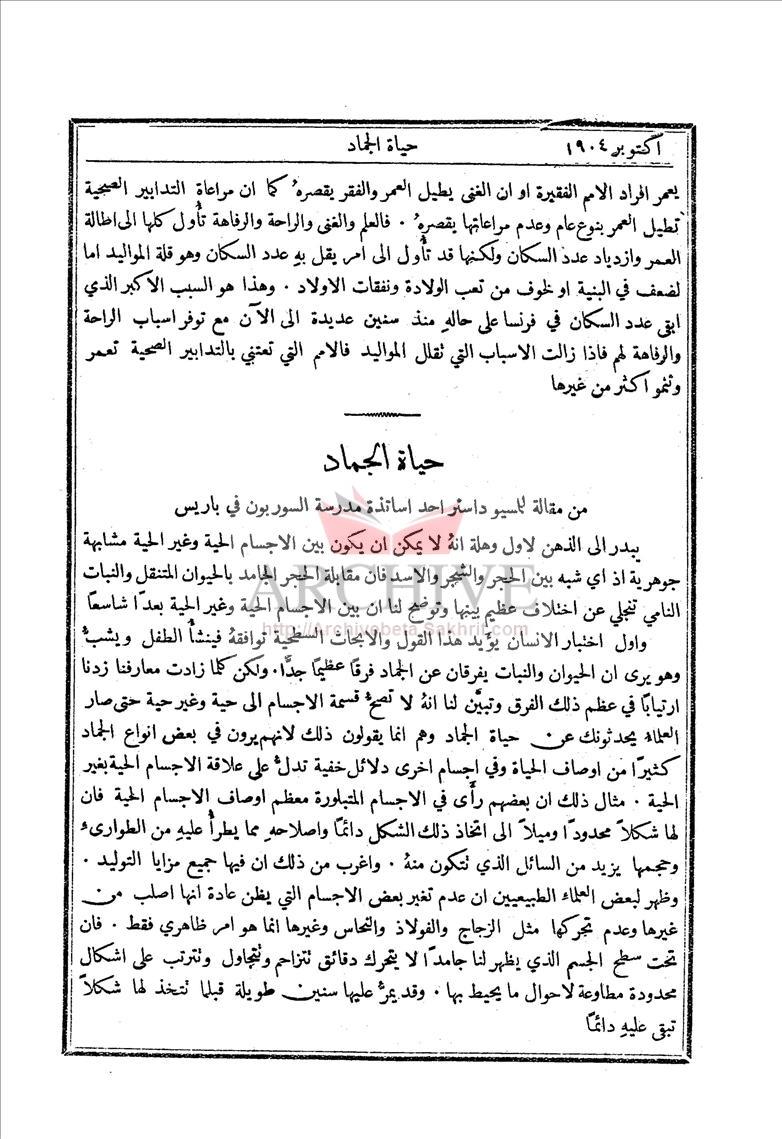 اكتوبر ١٩٠٤
حياة الجماد
يعمر افراد الامم الفقيرة او ان الغنى يطيل العمر والفقر يقصرهُ كما ان مراعاة التدابير الصحية
تطيل العمر بنوع عام وعدم مراعاتها يقصرهُ . فالعلم والغنى والراحة والرفاهة تأُول كلها الى اطالة
العمر وازدياد عدد السكان ولكنها قد تأُول الى امر يقل بهِ عدد السكان وهو قلة المواليد اما
لضعف في البنية او لخوف من تعب الولادة ونفقات الاولاد . وهذا هو السبب الاكبر الذي
ابقى عدد السكان في فرنسا على حالهِ منذ سنين عديدة الى الآن مع توفر اسباب الراحة
والرفاهة لهم فاذا زالت الاسباب التي تقلل المواليد فالامم التي تعتني بالتدابير الصحية تعمر
وتنمو اكثر من غيرها
حياة الجماد
من مقالة لمسيو داستر احد اساتذة مدرسة السوربون في باريس
يبدر الى الذهن لاول وهلة انهُ لا يمكن ان يكون بين الاجسام الحية وغير الحية مشابهة
جوهرية اذ اي شبه بين الحجر والشجر والاسد فان مقابلة الحجر الجامد بالحيوان المتنقل والنبات
النامي تنجلي عن اختلاف عظيم بينها وتوضح لنا ان بين الاجسام الحية وغير الحية بعدًا شاسعًا
واول اختبار الانسان يؤَيد هذا القول والابحاث السطحية توافقهُ فينشأُ الطفل ويشبُّ
وهو يرى ان الحيوان والنبات يفرقان عن الجماد فرقًا عظيمًا جدًّا . ولكن كلما زادت معارفنا زدنا
ارتيابًا في عظم ذلك الفرق وتبيَّن لنا انهُ لا تصحُّ قسمة الاجسام الى حية وغير حية حتى صار
العلماءُ يحدثونك عن حياة الجماد وهم انما يقولون ذلك لانهم يرون في بعض انواع الجماد
كثيرًا من اوصاف الحياة وفي اجسام اخرى دلائل خفية تدلُّ على علاقة الاجسام الحية بغير
الحية . مثال ذلك ان بعضهم رأَى في الاجسام المتبلورة معظم اوصاف الاجسام الحية فان
لها شكلاً محدودًا وميلاً الى اتخاذ ذلك الشكل دائمًا واصلاحهِ مما يطرأُ عليهِ من الطوارىء
وحجمها يزيد من السائل الذي نتكون منهُ . واغرب من ذلك ان فيها جميع مزايا التوليد .
وظهر لبعض العلماءِ الطبيعيين ان عدم تغير بعض الاجسام التي يظن عادة انها اصلب من
غيرها وعدم تحركها مثل الزجاج والفولاذ والنحاس وغيرها انما هو امر ظاهري فقط . فان
تحت سطح الجسم الذي يظهر لنا جامدًا لا يتحرك دقائق نتزاحم ونتجاول ونترتب على اشكال
محدودة مطاوعة لاحوال ما يحيط بها . وقد يمرُّ عليها سنين طويلة قبلما نتخذ لها شكلاً
تبقى عليهِ دائمًا
ARCHIVE
http://Archivebeta.Sakhrit.com